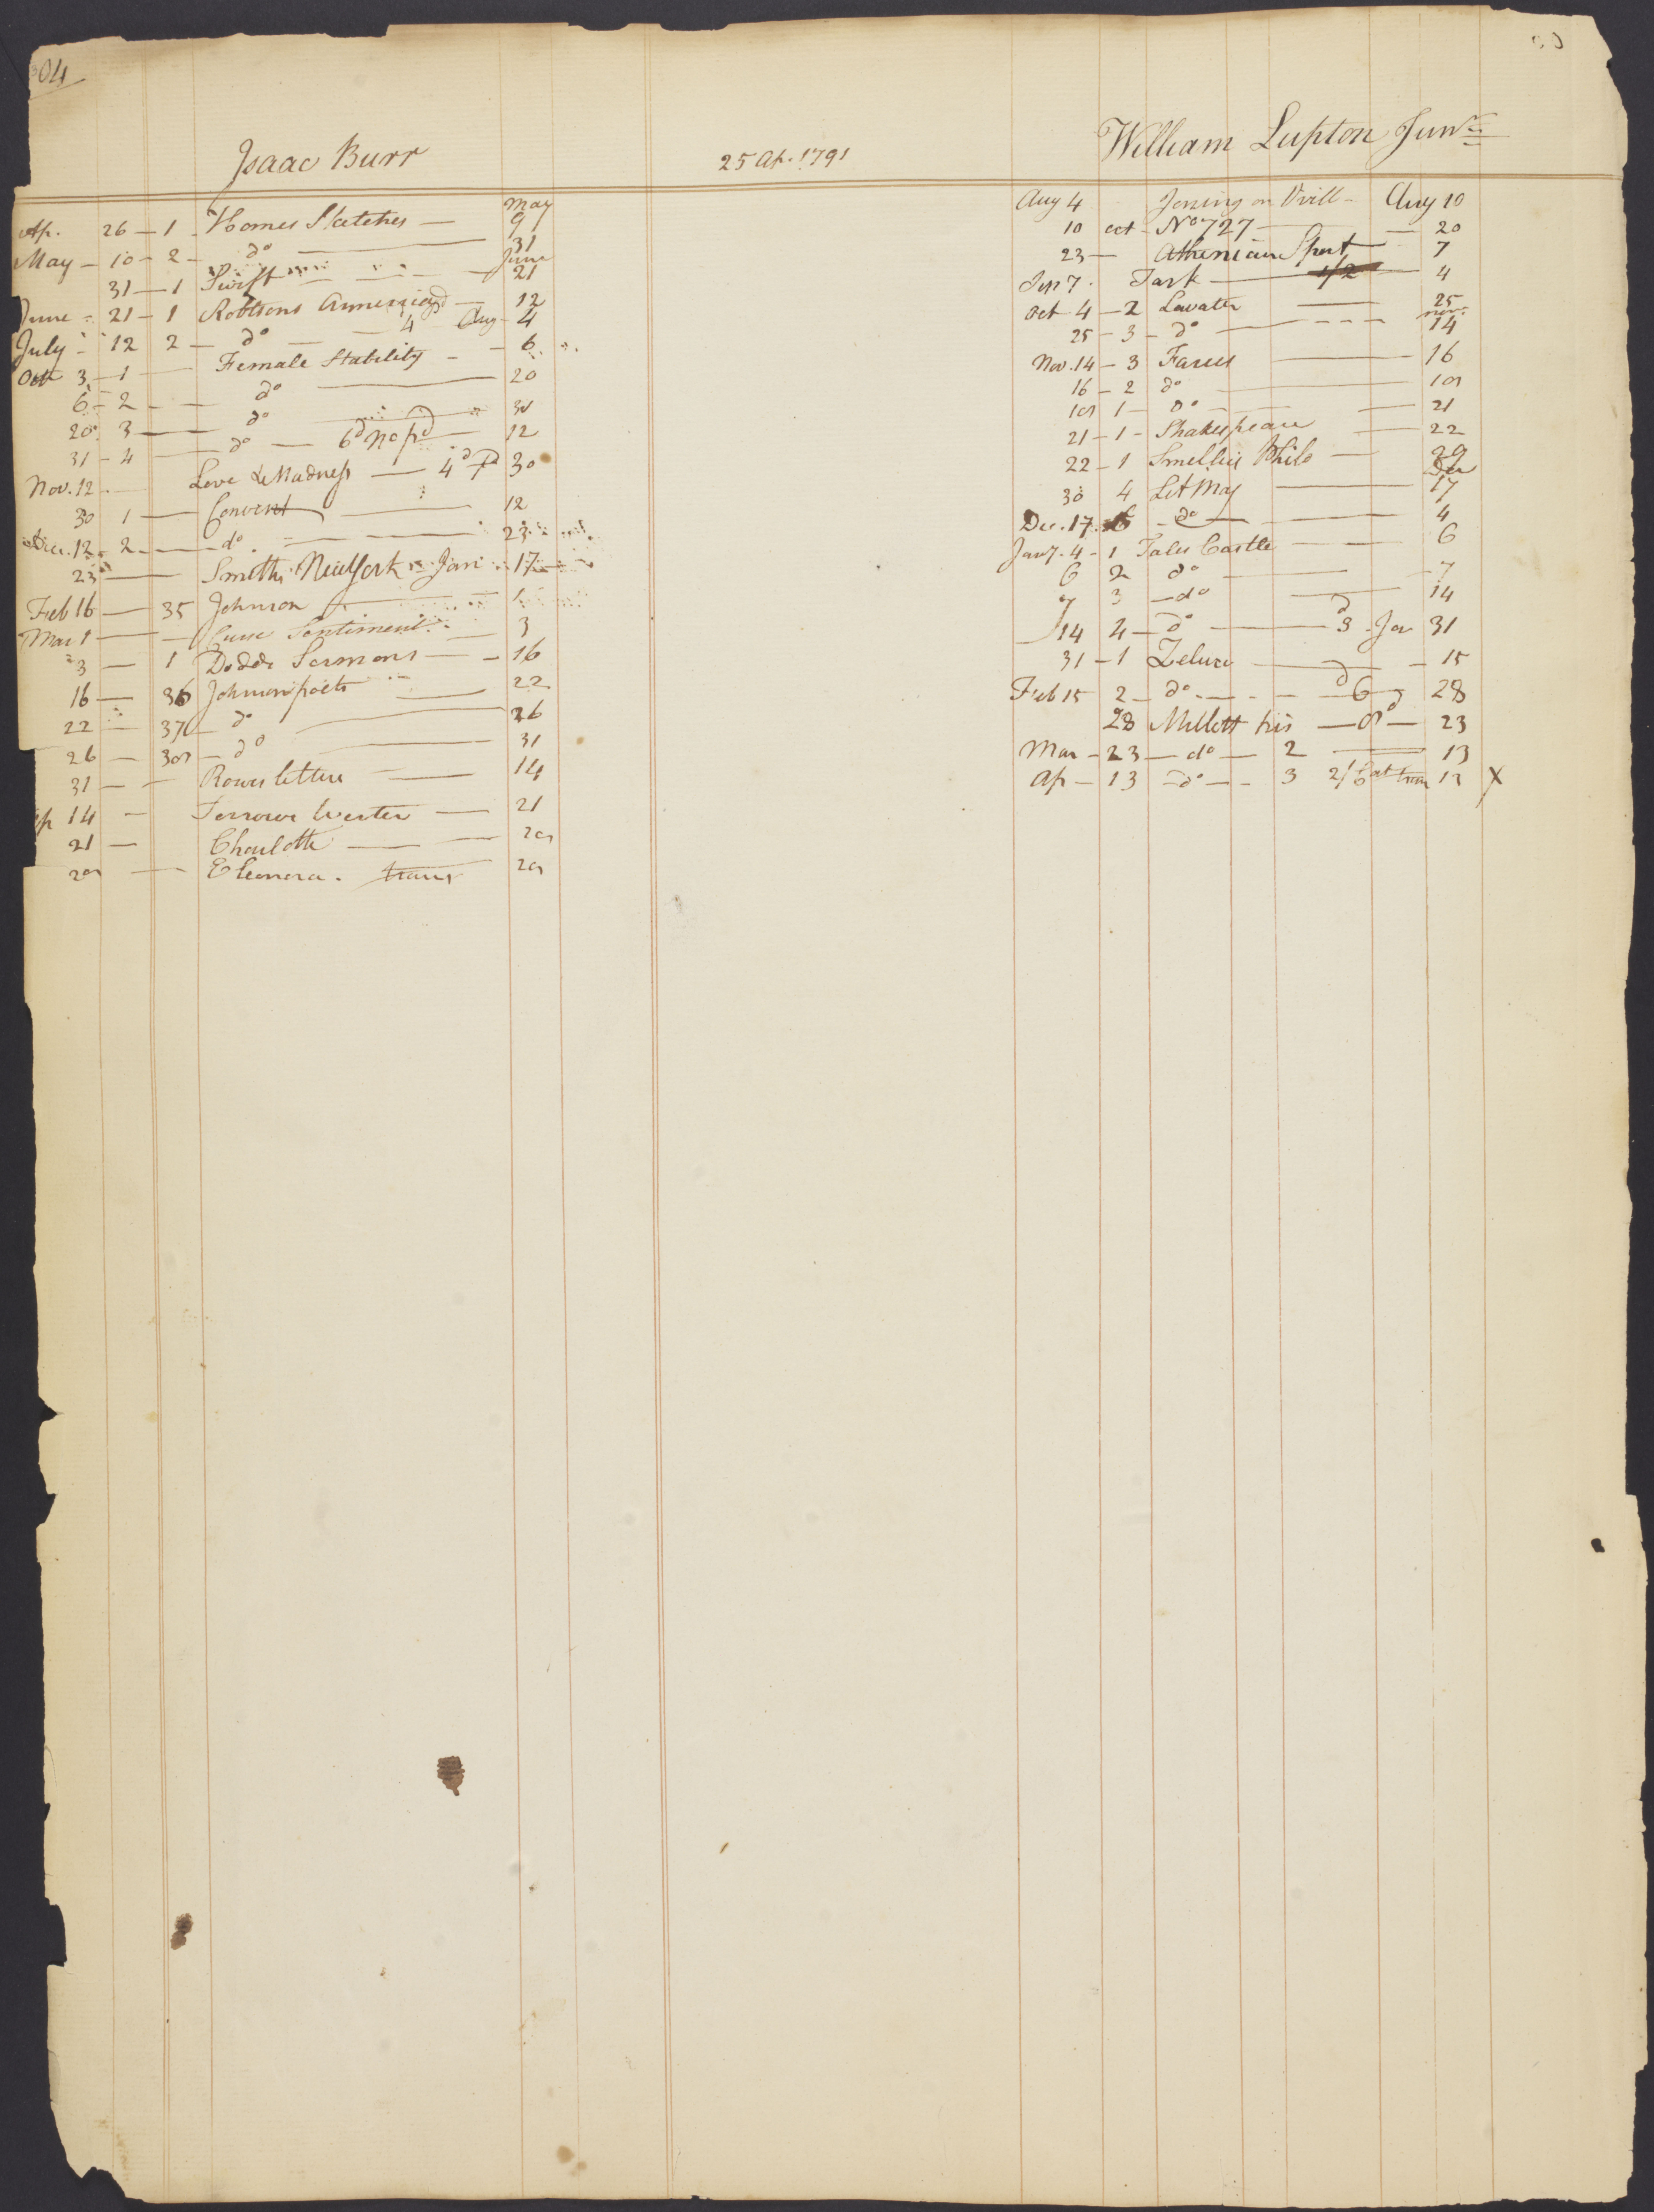 304
Isaac Burr
25 Ap. 1791
Ap. 26 — 1 Homes Sketches — May 9
May — 10 — 2 — do — 31
31 — 1 Swift — June 21
June 21 — 1 Robtsons America — 12
July 12 2 — do — 4d Aug 4
Oct 3 — 1 Female Stability — 6
6 — 2 — do — 20
20 3 — do — 31
31 — 4 — do — 6d No pd — 12
Nov. 12 Love & Madness — 4d Pd 30
30 1 — Convent — 12
Dec. 12 — 2 — do — 23
23 — Smiths New York Jan 17
Feb 16 — 35 Johnson — 1
Mar 1 — Curse Sentiment — 3
3 — 1 Dodds Sermons — 16
16 — 36 Johnsons poets — 22
22 — 37 — do — 26
26 — 38 — do — 31
31 — Rowes letters — 14
Ap 14 — Sorrows Werter — 21
21 — Charlotte — 28
28 — Eleonora. trans 28
William Lupton Junr.
Aug 4 on Drill — Aug 10
10 oct — No 727 — 20
23 — Athenian Sport — 7
Sep 7. Task — 1/2 — 4
Oct 4 — 2 Lavater — 25
25 — 3 — do — Nov. 14
Nov. 14 — 3 Farces — 16
16 — 2 do — 18
18 1 — Do — 21
21 — 1 — Shakespeare — 22
22 — 1 Smellies Philo — 29
30 4 Lit Mag — Dec 17
Dec. 17. 5 — do — 4
Jany. 4 — 1 Tales Castle — 6
6 2 do — 7
7 3 — do — 14
14 4 — do — 3d Jan 31
31 — 1 Zeluco — 15
Feb 15 2 — do — 6d 28
28 Millott his — 8d — 23
Mar — 23 — do — 2 — 13
Ap — 13 — do — 3 2/ Cat tran 13 X